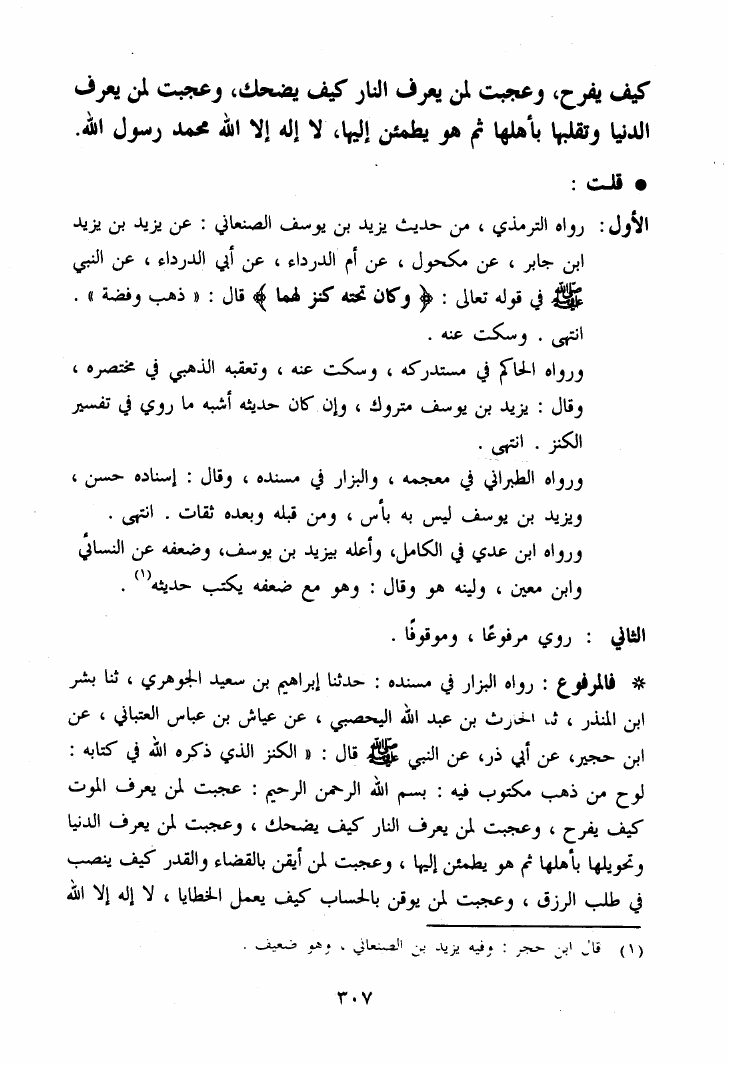 كيف يفرح، وعجبت لمن يعرف النار كيف يضحك، وعجبت لمن يعرف
الدنيا وتقلبها بأهلها ثم هو يطمئن إليها، لا إله إلا الله محمد رسول الله.
● قلت :
الأول: رواه الترمذي ، من حديث يزيد بن يوسف الصنعاني : عن يزيد بن يزيد
ابن جابر ، عن مكحول ، عن أم الدرداء ، عن أبي الدرداء ، عن النبي
ﷺ في قوله تعالى : ﴿ وكان تحته كنز لهما ﴾ قال : « ذهب وفضة » .
انتهى . وسكت عنه .
ورواه الحاكم في مستدركه ، وسكت عنه ، وتعقبه الذهبي في مختصره ،
وقال : يزيد بن يوسف متروك ، وإن كان حديثه أشبه ما روي في تفسير
الكنز . انتهى .
ورواه الطبراني في معجمه ، والبزار في مسنده ، وقال : إسناده حسن ،
ويزيد بن يوسف ليس به بأس ، ومن قبله وبعده ثقات . انتهى .
ورواه ابن عدي في الكامل، وأعله بيزيد بن يوسف، وضعفه عن النسائي
وابن معين ، ولينه هو وقال : وهو مع ضعفه يكتب حديثه(١) .
الثاني : روي مرفوعًا ، وموقوفًا .
* فالمرفوع : رواه البزار في مسنده : حدثنا إبراهيم بن سعيد الجوهري ، ثنا بشر
ابن المنذر ، ثنا الحارث بن عبد الله اليحصبي ، عن عياش بن عباس العتباني ، عن
ابن حجير، عن أبي ذر، عن النبي ﷺ قال : « الكنز الذي ذكره الله في كتابه :
لوح من ذهب مكتوب فيه : بسم الله الرحمن الرحيم : عجبت لمن يعرف الموت
كيف يفرح ، وعجبت لمن يعرف النار كيف يضحك ، وعجبت لمن يعرف الدنيا
وتحويلها بأهلها ثم هو يطمئن إليها ، وعجبت لمن أيقن بالقضاء والقدر كيف ينصب
في طلب الرزق ، وعجبت لمن يوقن بالحساب كيف يعمل الخطايا ، لا إله إلا الله
(١) قال ابن حجر : وفيه يزيد بن الصنعاني ، وهو ضعيف .
٣٠٧